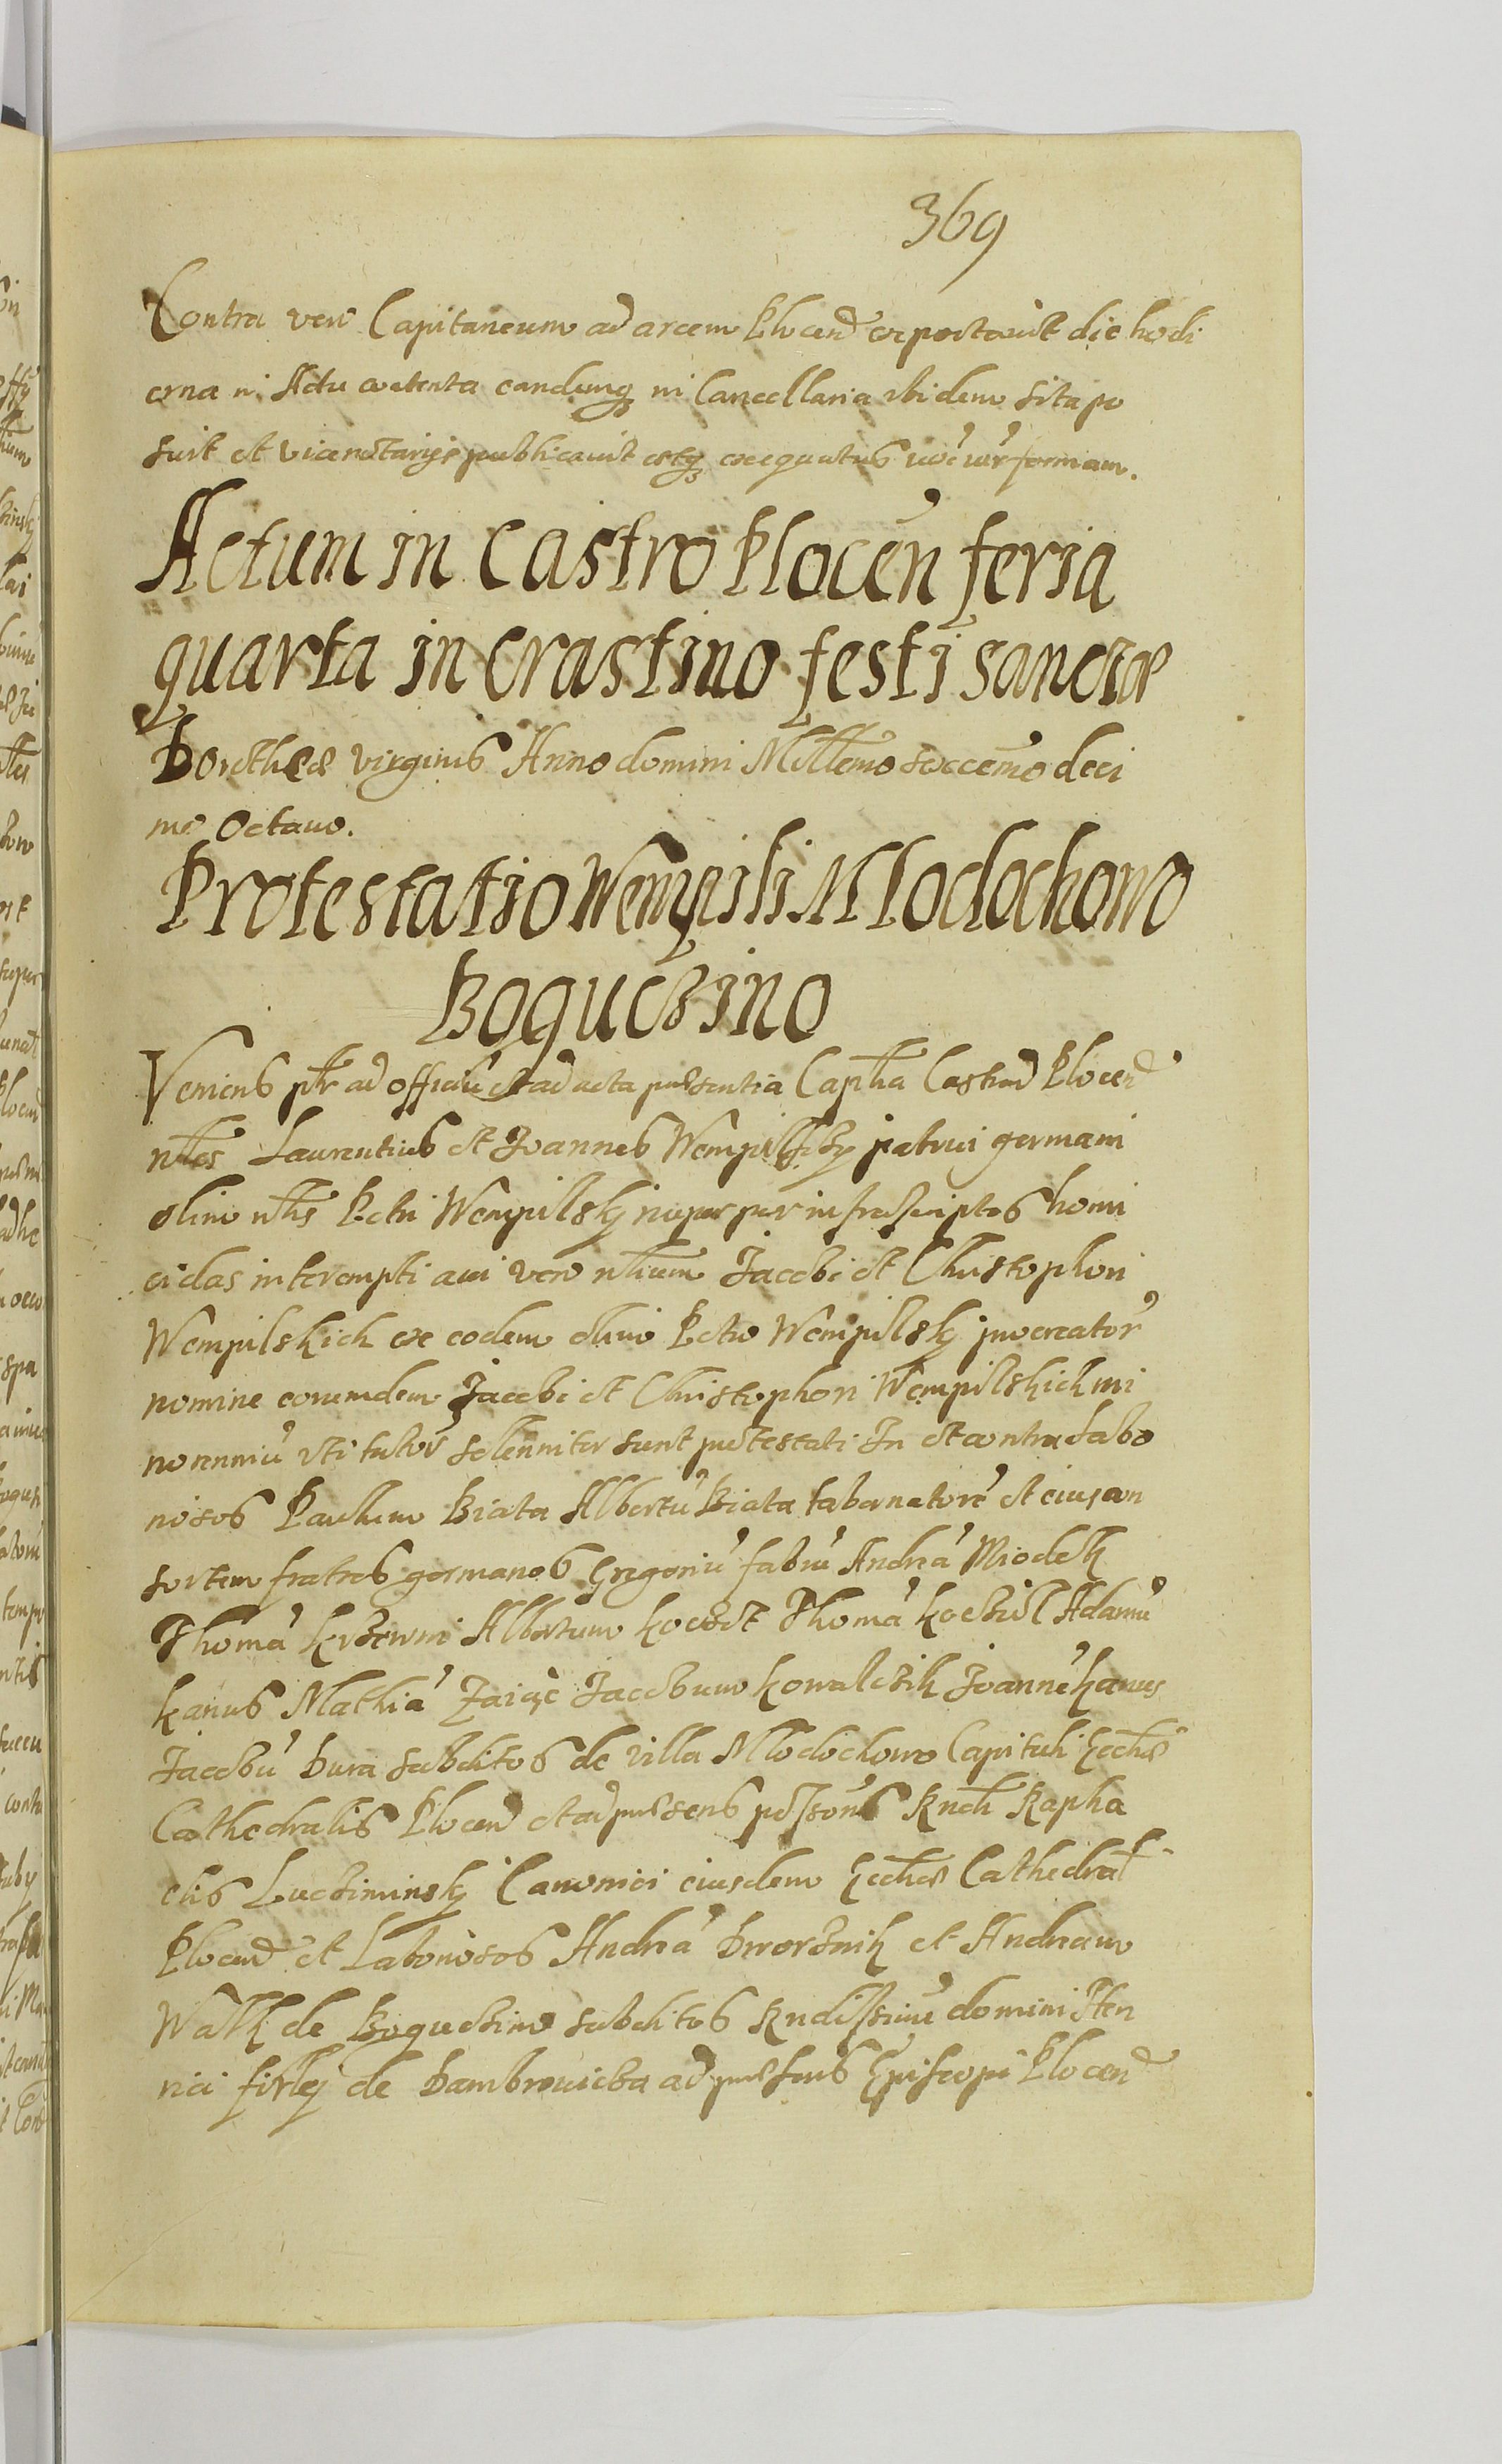 369
Contra vero Capitaneum ad arcem Plocen exportavit die hodi
erna in Actu contenta eandemq in Cancellaria ibidem sita po
suit et vicenotarijs publicavit estq exequutus formam.
Actum in Castro Plocen feria
quarta in crastino festi sanctæ
Dorotheæ virginis Anno domini Millemo sexcemo deci
mo Octavo.
Protestatio Wempisli Mlodochowo
Boguczino
Veniens ptr ad officiu et ad acta præsentia Captla Castren Plocen
nles Laurentius et Joannes Wempilsky patrui germani
olim nlis Petri Wempilskj nuper per infrascriptos homi
cidas interempti avi vero nlium Jacobi et Christophori
Wempilskich ex eodem olim Petro Wempilskj procreator
nomine eorumdem Jacobi et Christophori Wempilskich mi
norenniu uti tutor solenniter sunt protestati In et contra Labo
riosos Paulum Biata Albertu Biata tabernatore et eius con
sortem fratres germanos Gregoriu fabru Andrea Miodek
Thoma Albertum Thoma Adamu
Kanus Mathia Zaiąc Jacobum Kowalczik Joanne Kanus
Jacobu Dura subditos de villa Mlodochowo Capituli Eccliæ
Cathedralis Plocen et ad præsens possonis Rndi Rapha
elis Lucziminskj Canonici eiusdem Eccliæ Cathedral
Plocen et Laboriosos Andrea Dworznik et Andream
Walk de Boguczino subditos Rndissimi domini Hen
rici firlej de Dambrovicza ad præsens Episcopi Plocen